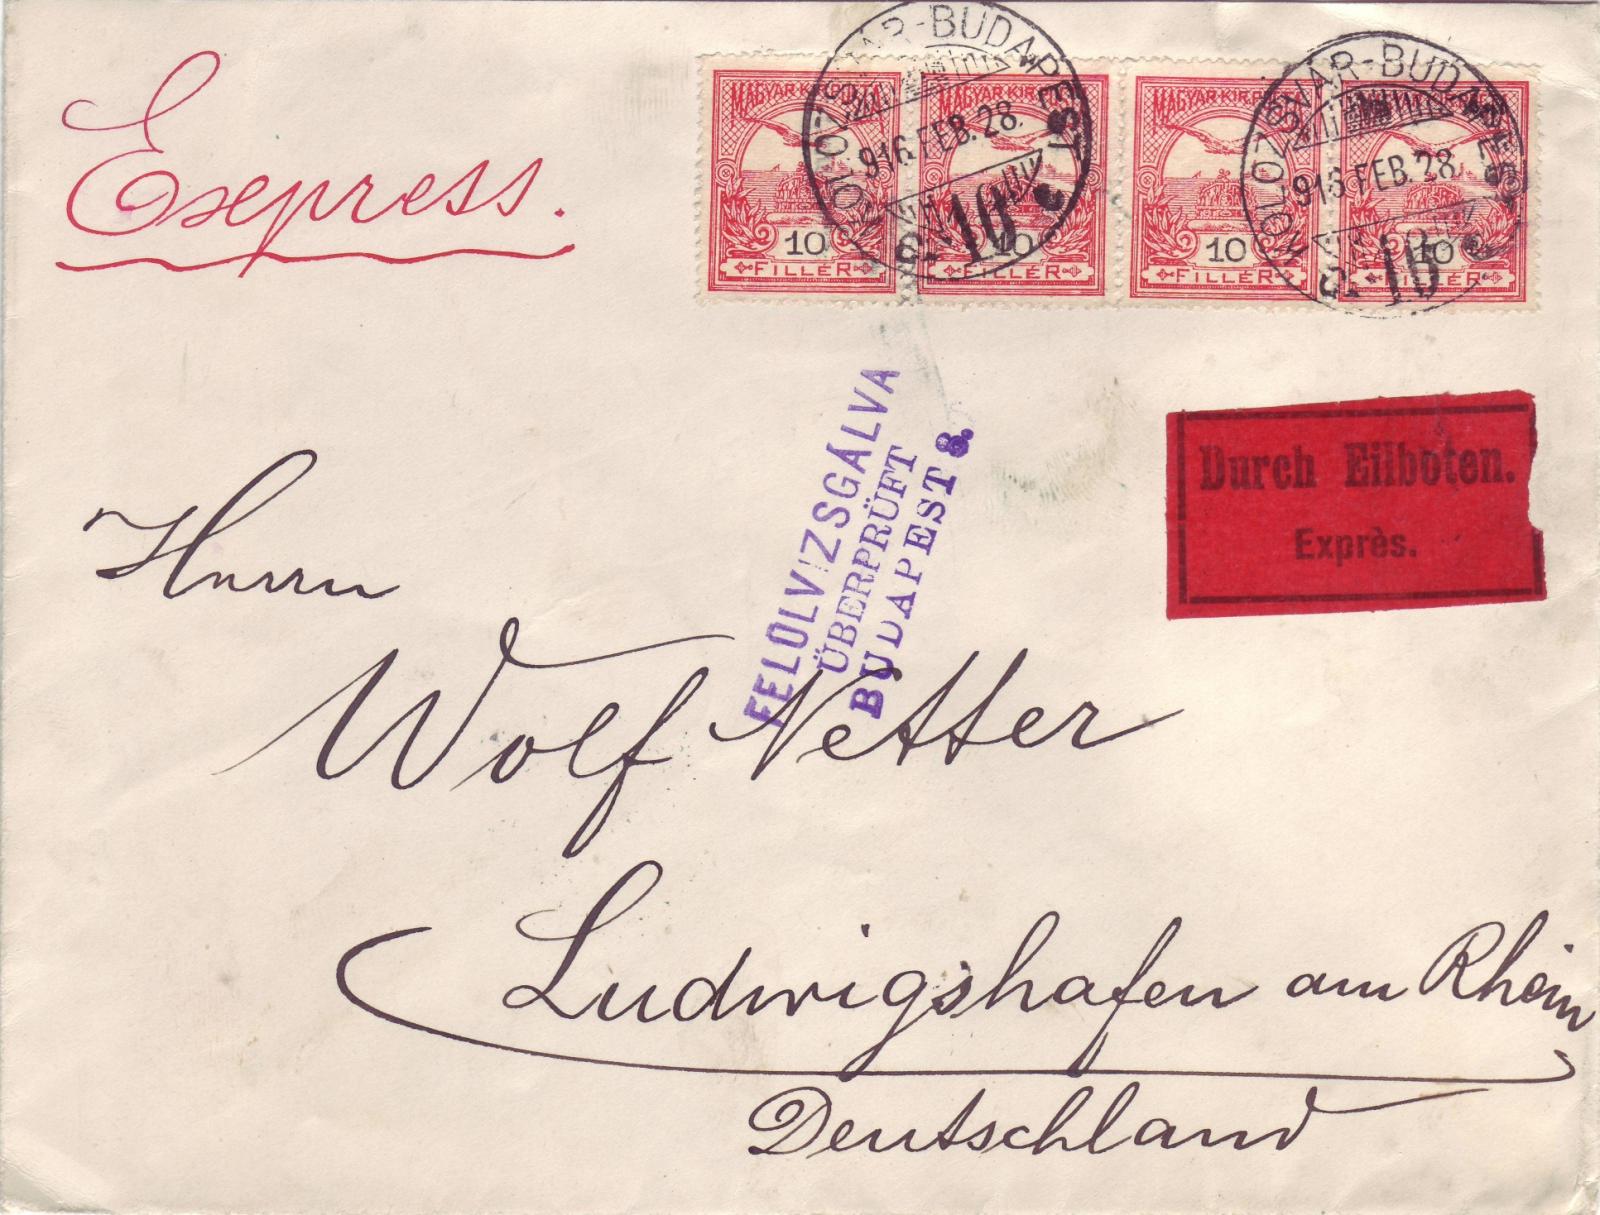 Express.
MAGYAR·KIR.POSTA MAGYAR·KIR.POSTA MAGYAR·KIR.POSTA MAGYAR·KIR.POSTA
10 10 10 10
FILLÉR FILLÉR FILLÉR FILLÉR
KOLOZSVÁR-BUDAPEST
916 FEB. 28.
10
KOLOZSVÁR-BUDAPEST
916 FEB. 28.
10
FELÜLVIZSGÁLVA
ÜBERPRÜFT
BUDAPEST 8.
Durch Eilboten.
Exprès.
Herrn
Wolf Netter
Ludwigshafen am Rhein
Deutschland